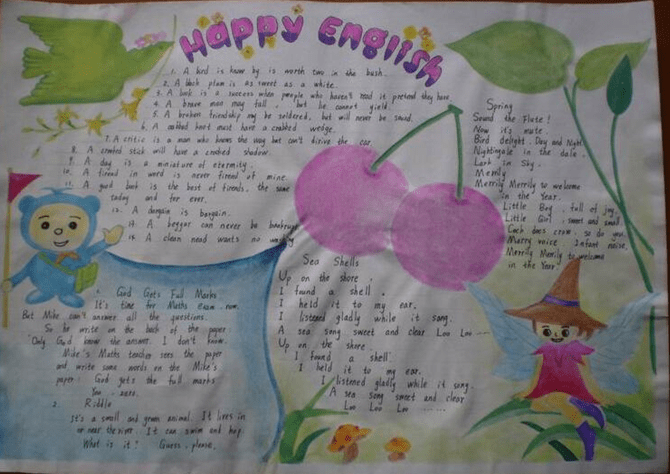 Happy English
1. A bird is know by is worth two in the bush.
2. A black plum is as sweet as a white.
3. A book is a success when people who haven't read it pretend they have.
4. A brave man may fall, but he cannot yield.
5. A broken friendship may be soldered, but will never be sound.
6. A crabbed knot must have a crabbed wedge.
7. A critic is a man who knows the way but can't drive the car.
8. A crooked stick will have a crooked shadow.
9. A day is a miniature of eternity.
10. A friend in word is never friend of mine.
11. A good book is the best of friends, the same
today and for ever.
12. A bargain is bargain.
13. A beggar can never be bankrupt
14. A clean hand wants no washing
1. God Gets Full Marks
It's time for Maths exam now.
But Mike can't answer all the questions.
So he write on the back of the paper
"Only God know the answer. I don't know.
Mike's Maths teacher sees the paper
and write some words on the Mike's
paper: God gets the full marks
You, zero.
2. Riddle
It's a small and green animal. It lives in
or near the river. It can swim and hop.
What is it? Guess, please.
Sea Shells
Up on the shore,
I found a shell,
I held it to my ear.
I listened gladly while it song.
A sea song sweet and clear Loo Loo ---
Up on the shore
I found a shell
I held it to my ear.
I listened gladly while it song.
A sea song sweet and clear
Loo Loo Loo .......
Spring
Sound the Flute!
Now it's mute.
Bird delight, Day and Night
Nightingale in the dale,
Lark in Sky,
Merrily
Merrily Merrily to welcome
in the Year.
Little Boy, full of joy,
Little Girl, sweet and small
Cock does crow, so do you,
Merry voice, Infant noise,
Merrily Merrily to welcome
in the Year.